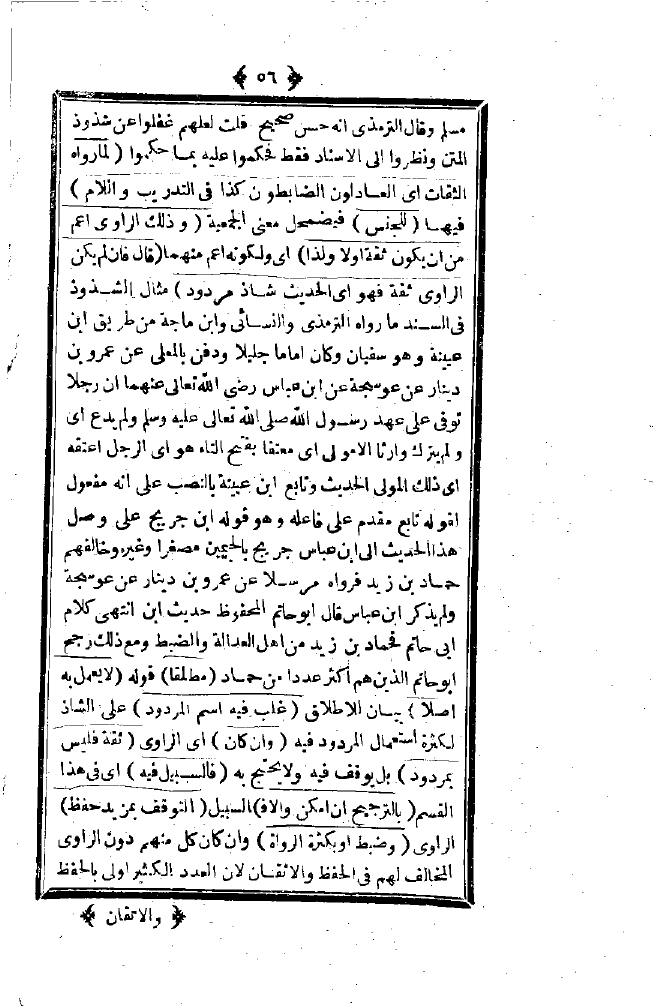 ﴿ ٥٦ ﴾
مسلم وقال الترمذى انه حسن صحيح قلت لعلهم غفلوا عن شذوذ
المتن ونظروا الى الاسناد فقط فحكموا عليه بما حكموا ( لمارواه
الثقات اى العادلون الضابطون كذا فى التدريب واللام )
فيها ( للجنس ) فيضمحل معنى الجمعية ( وذلك الراوى اعم
من ان يكون ثقة اولا ولذا ) اى ولكونه اعم منهما (قال فان لم يكن
الراوى ثقة فهو اى الحديث شاذ مردود ) مثال الشذوذ
فى السند ما رواه الترمذى والنسائى وابن ماجة من طريق ابن
عيينة وهو سفيان وكان اماما جليلا ودفن بالمعلى عن عمرو بن
دينار عن عوسجة عن ابن عباس رضى الله تعالى عنهما ان رجلا
توفى على عهد رسول الله صلى الله تعالى عليه وسلم ولم يدع اى
ولم يترك وارثا الا مولى اى معتقا بفتح التاء هو اى الرجل اعتقه
اى ذلك المولى الحديث وتابع ابن عيينة بالنصب على انه مفعول
لقوله تابع مقدم على فاعله وهو قوله ابن جريج على وصل
هذا الحديث الى ابن عباس جريج بالجيمين مصغرا وغيره وخالفهم
حماد بن زيد فرواه مرسلا عن عمرو بن دينار عن عوسجة
ولم يذكر ابن عباس قال ابو حاتم المحفوظ حديث ابن انتهى كلام
ابى حاتم فحماد بن زيد من اهل العدالة والضبط ومع ذلك رجح
ابو حاتم الذين هم أكثر عددا من حماد (مطلقا) قوله (لايعمل به
اصلا ) بيان الاطلاق ( غلب فيه اسم المردود ) على الشاذ
لكثرة أستعمال المردود فيه ( وان كان ) اى الراوى ( ثقة فليس
بمردود ) بل يوقف فيه ولا يحتج به ( فالسبيل فيه ) اى فى هذا
القسم ( بالترجيح ان امكن والا فا) لسبيل ( التوقف بمزيد حفظ)
الراوى ( وضبط او بكثرة الرواة ) وان كان كل منهم دون الراوى
المخالف لهم فى الحفظ والاتقان لان العدد الكثير اولى بالحفظ
﴿ والاتقان ﴾